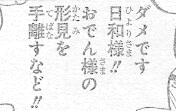 ダメです
日和様!!
おでん様の
形見を
手離すなど!!